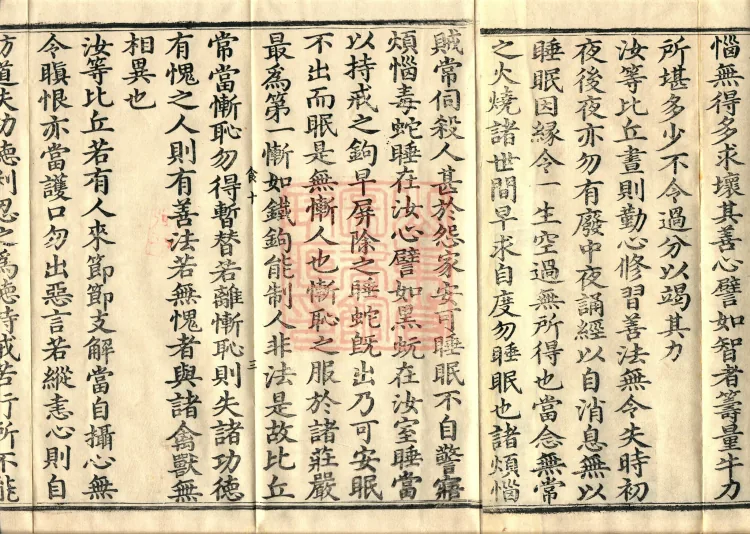 惱無得多求壞其善心譬如智者籌量牛力
所堪多少不令過分以竭其力
汝等比丘晝則勤心修習善法無令失時初
夜後夜亦勿有廢中夜誦經以自消息無以
睡眠因緣令一生空過無所得也當念無常
之火燒諸世間早求自度勿睡眠也諸煩惱
賊常伺殺人甚於怨家安可睡眠不自警寤
煩惱毒蛇睡在汝心譬如黑蚖在汝室睡當
以持戒之鉤早屏除之睡蛇旣出乃可安眠
不出而眠是無慚人也慚恥之服於諸莊嚴
最為第一慚如鐵鉤能制人非法是故比丘
食十
三
常當慚恥勿得暫替若離慚恥則失諸功德
有愧之人則有善法若無愧者與諸禽獸無
相異也
汝等比丘若有人來節節支解當自攝心無
令瞋恨亦當護口勿出惡言若縱恚心則自
妨道失功德利忍之為德持戒苦行所不能